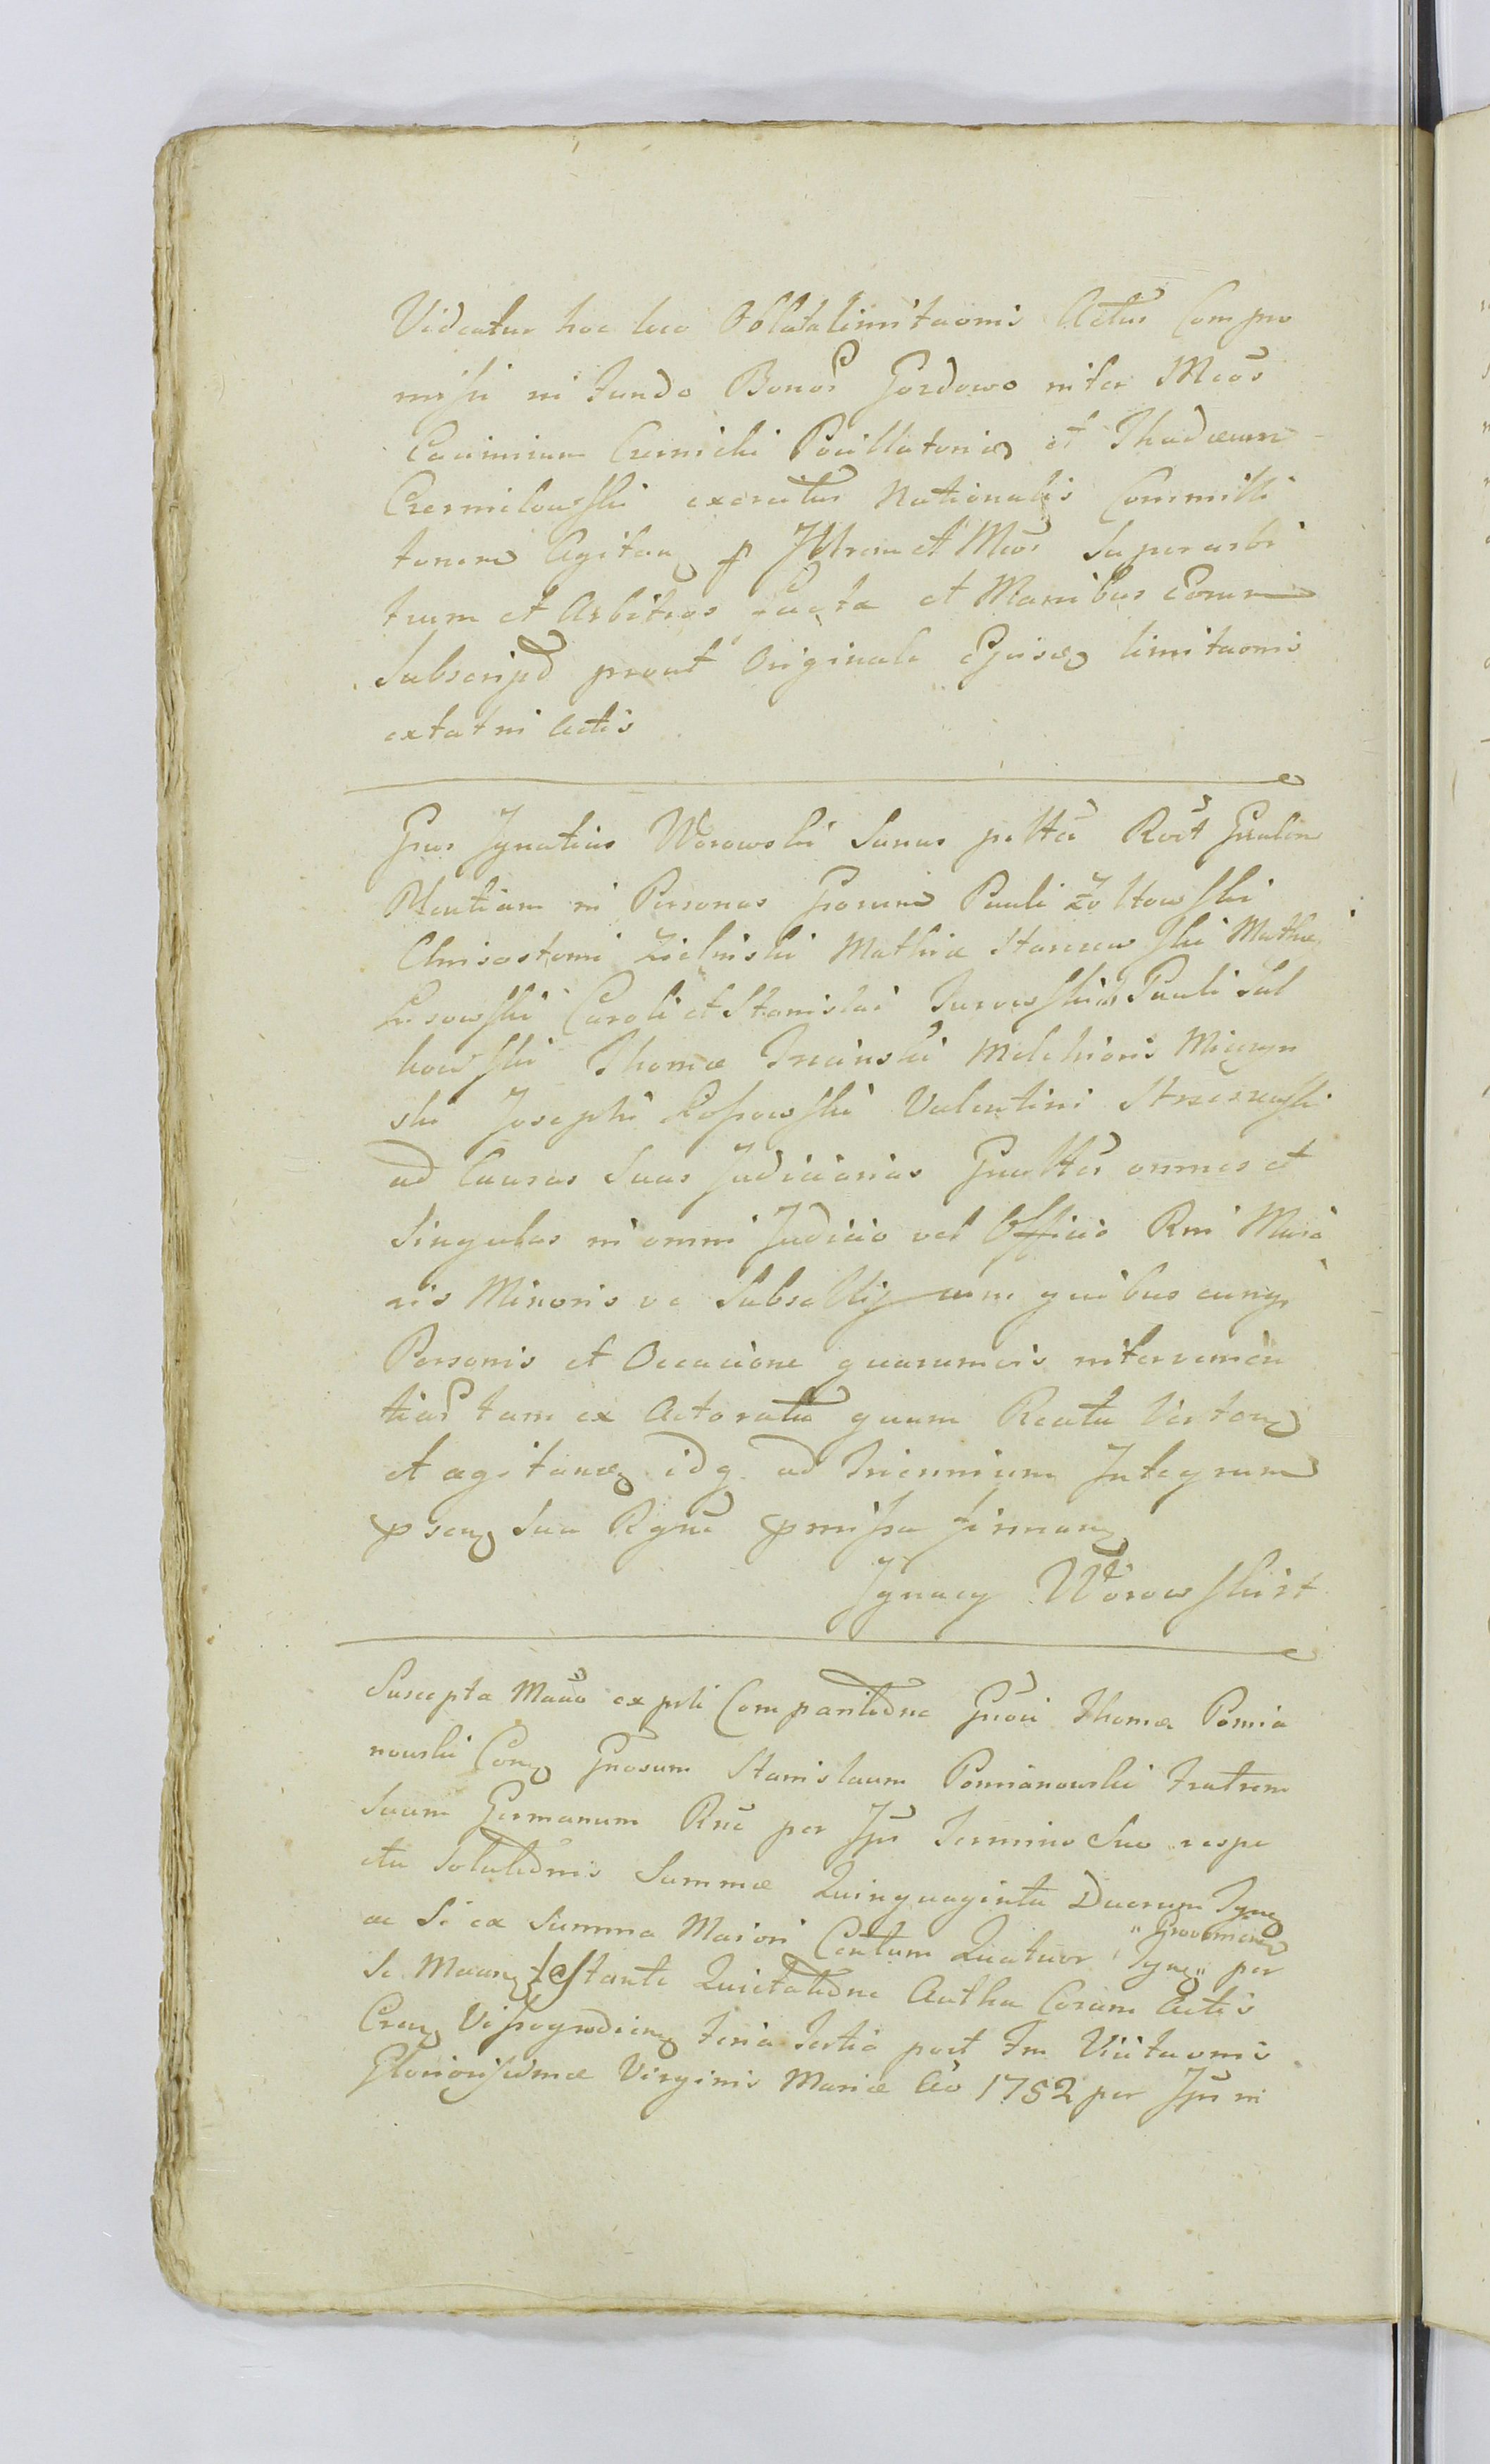 Videatur hoc loco Oblata limitaonis Actus Compro
missi in fundo Bonor Gordowo inter Mcos
Casimirum Czernicki Pocillatoris et Thadæum
Czermilowski exercitus Nationalis Commilli
tonem Agitan p Illrem et Mcos Superarbi
trum et Arbitros facta et Manibus Eorum
Subscript prout Originale Ejusd limitaonis
extat in Actis
Gnus Ignatius Worowski Sanus p Rort Gnalem
Ptentiam in Personas Gnorum Pauli Zołtowski
Chrisostomi Zielinski Mathiæ Mathiæ
Lisowski Caroli et Stanislai Pauli Sul
kowski Thomæ Trzcinski Melchioris Mieczyn
ski Josephi Kossowski Valentini
ad Causas Suas Judiciarias omnes et
Singulas in omni Judicio vel Officio Rni Maio
ris Minoris ve Subsellij cum quibus cunq
Personis et Occacione quarumvis intervenien
tiar tam ex Actoratu quam Reatu Verton
et agitan idq ad Triennium Integrum
psen Sua Rgne pmissa firman
Ignacy Worowski
Suscepta Mano ex psti Comparitione Gnosi Thomæ Pomia
nowski Con Gnosum Stanislaum Pomianowski Fratrem
Suum Germanum Rne per Ipm Termino Suo respe
ctu Solutionis Summæ Quinquaginta Duorum Tyn
ac Si ex Summa Maiori Centum Quatuor Tyn " Provenien " per
Se stante Quietatione Autha Coram Actis
Cren Vissogrodien feria tertia post Fm Visitaonis
Gloriosissimæ Virginis Mariæ Ao 1782 per Ipm in